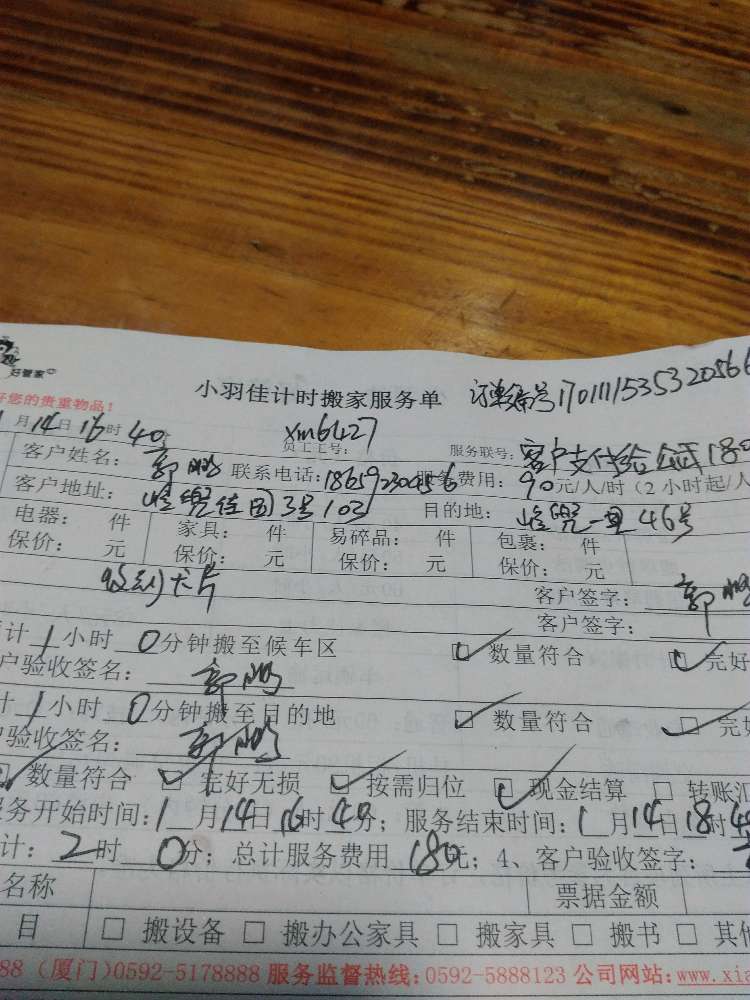 好管家
小羽佳计时搬家服务单 订单编号1701111535320566
好您的贵重物品!
月14日16时40
xm6427
员工工号: 服务联号: 客户支付给公司180
客户姓名: 郭鹏 联系电话:18659230056 服务费用: 90元/人/时(2小时起/人
客户地址: 佳园3号103 目的地: 一里46号
电器: 件 家具: 件 易碎品: 件 包裹: 件
保价: 元 保价: 元 保价: 元 保价: 元
收到卡片 客户签字: 郭鹏
客户签字:
计1小时0分钟搬至候车区 数量符合 完好
户验收签名: 郭鹏
计1小时0分钟搬至目的地 数量符合 完好
验收签名: 郭鹏
数量符合 完好无损 按需归位 现金结算 转账汇
服务开始时间:1月14日16时40分;服务结束时间:1月14日18时40
计:2时0分;总计服务费用180元;4、客户验收签字:
名称 票据金额
目 □ 搬设备 □ 搬办公家具 □ 搬家具 □ 搬书 □ 其他
88 (厦门)0592-5178888 服务监督热线:0592-5888123 公司网站:www.xia